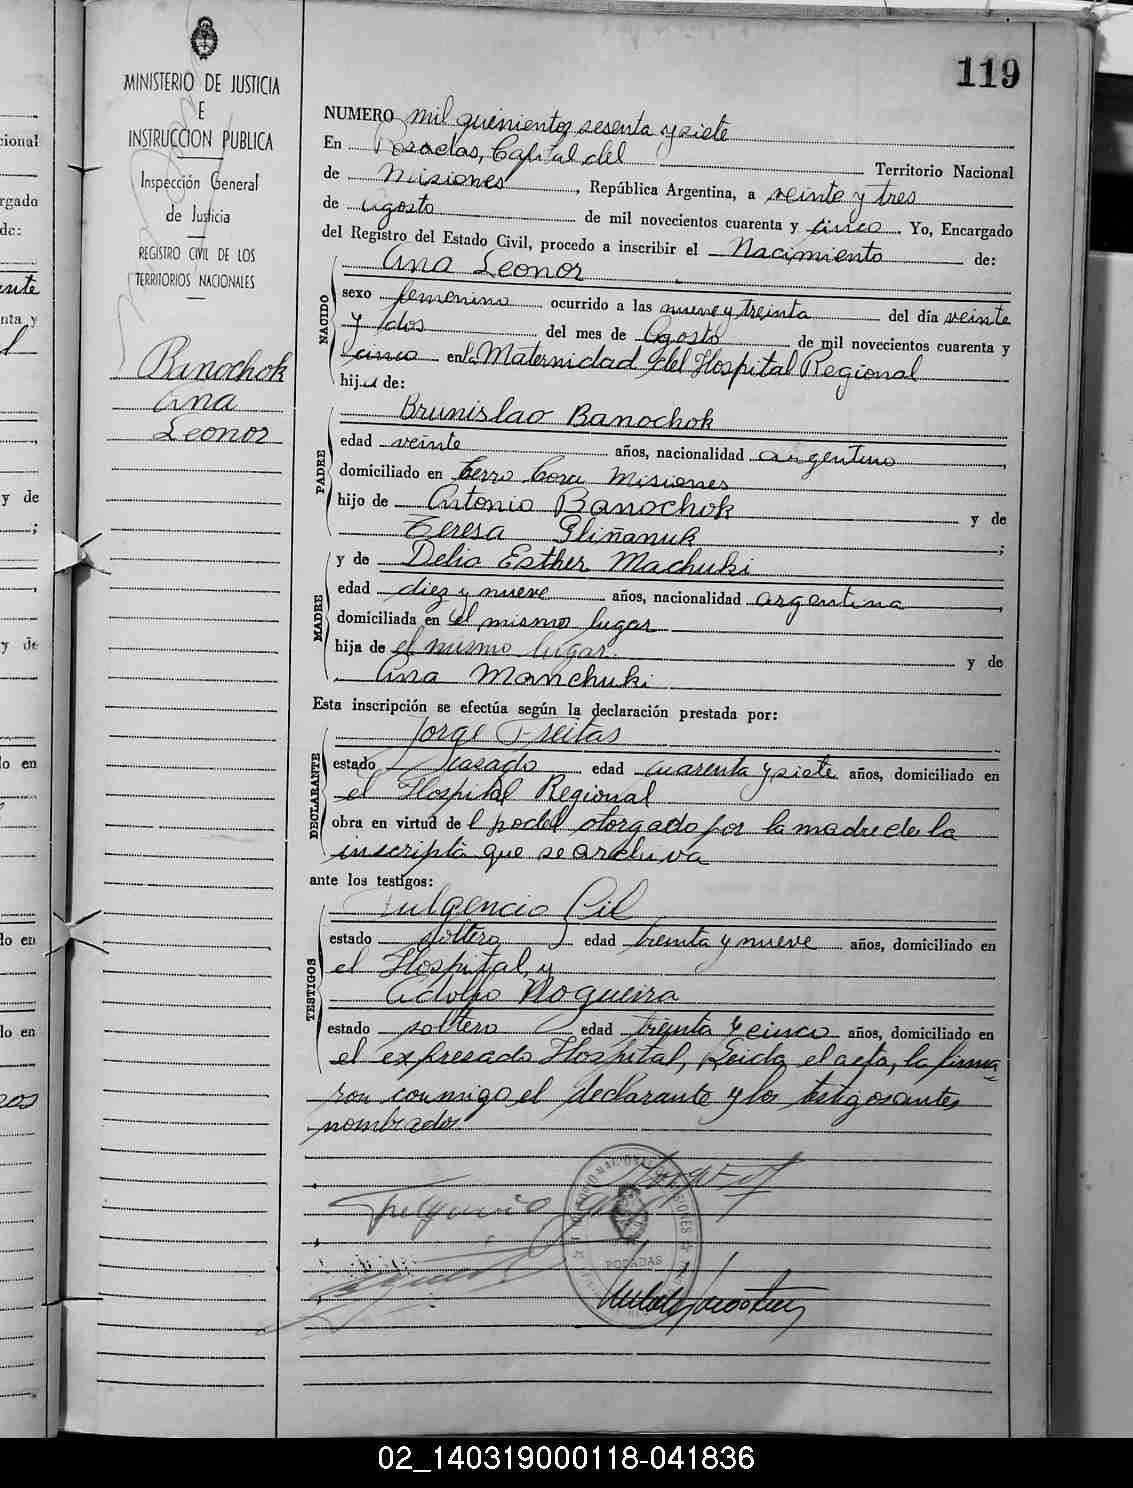 MINISTERIO DE JUSTICIA
E
INSTRUCCION PUBLICA
Inspección General
de Justicia
REGISTRO CIVIL DE LOS
TERRITORIOS NACIONALES
Banochok
Ana
Leonor
119
NUMERO mil quinientos sesenta y siete
En Posadas, Capital del Territorio Nacional
de Misiones, República Argentina, a veinte y tres
de Agosto de mil novecientos cuarenta y cinco. Yo, Encargado
del Registro del Estado Civil, procedo a inscribir el Nacimiento de:
Ana Leonor
NACIDO
sexo femenino ocurrido a las nueve y treinta del día veinte
y dos del mes de Agosto de mil novecientos cuarenta y
cinco en la Maternidad del Hospital Regional
hija de:
Brunislao Banochok
PADRE
edad veinte años, nacionalidad argentino,
domiciliado en Cerro Cora Misiones
hijo de Antonio Banochok y de
Teresa Gliñanuk;
y de Delia Esther Machuki
MADRE
edad diez y nueve años, nacionalidad argentina,
domiciliada en el mismo lugar
hija de el mismo lugar. y de
Ana Manchuki
Esta inscripción se efectúa según la declaración prestada por:
Jorge Freitas
DECLARANTE
estado casado edad cuarenta y siete años, domiciliado en
el Hospital Regional
obra en virtud del poder otorgado por la madre de la
inscripta que se archiva
ante los testigos:
Fulgencio Gil
TESTIGOS
estado soltero edad treinta y nueve años, domiciliado en
el Hospital, y
Adolfo Nogueira
estado soltero edad treinta y cinco años, domiciliado en
el expresado Hospital, Leida el acta, la firma
ron conmigo el declarante y los testigos antes
nombrados.
POSADAS
02_140319000118-041836